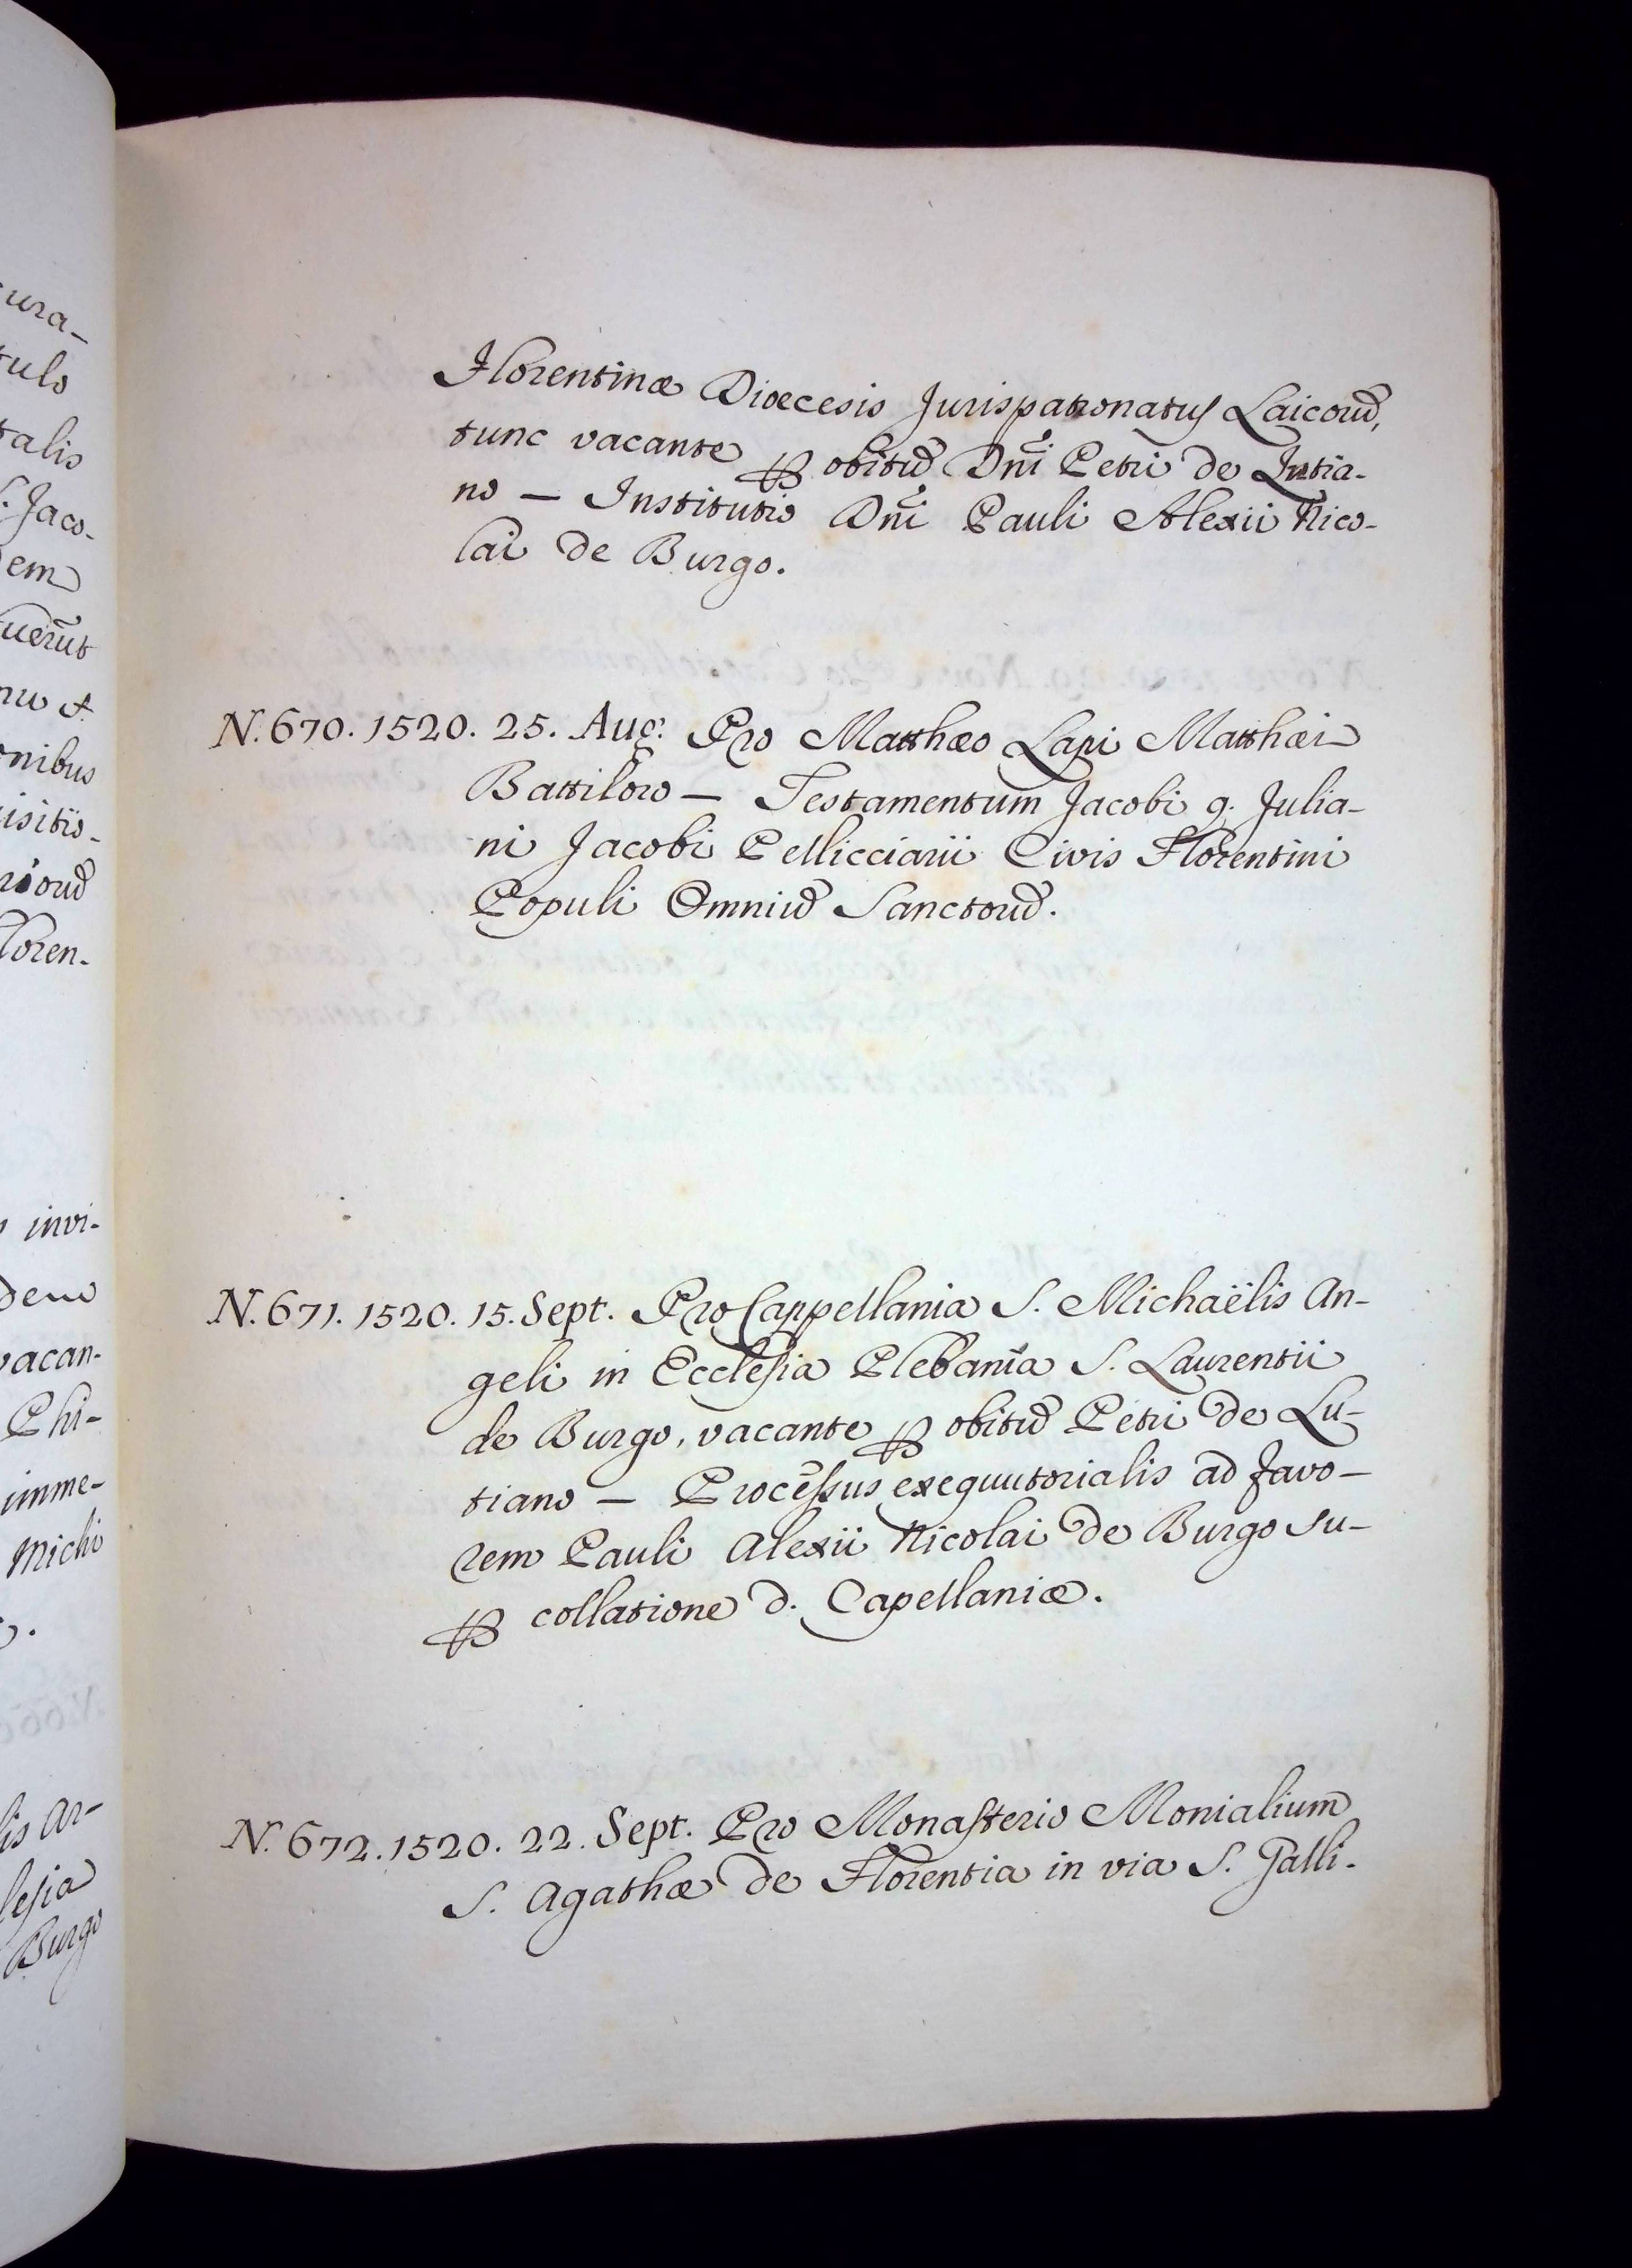 ura-
tulo
talis
S. Jaco-
dem
uerũt
nu et
onibus
isitio-
Floren-
invi-
dem
vacan-
Phi-
imme-
Michi
lis Ar-
lesia
Burgo
Florentinæ Diœcesis Jurispatronatus Laicorũ,
tunc vacante ꝑ obitũ Dñi Petri de Lutia-
no — Institutio Dñi Pauli Alexii Nico-
lai de Burgo.
N. 670. 1520. 25. Aug. Pro Matthæo Lapi Matthæi
Battiloro — Testamentum Jacobi q. Julia-
ni Jacobi Pellicciarii Civis Florentini
Populi Omniũ Sanctorũ.
N. 671. 1520. 15. Sept. Pro Cappellania S. Michaëlis An-
geli in Ecclesia Plebania S. Laurentii
de Burgo, vacante ꝑ obitũ Petri de Lu-
tiano — Processus exequutorialis ad favo-
rem Pauli Alexii Nicolai de Burgo su-
ꝑ collatione d. Capellaniæ.
N. 672. 1520. 22. Sept. Pro Monasterio Monialium
S. Agathæ de Florentia in via S. Galli.